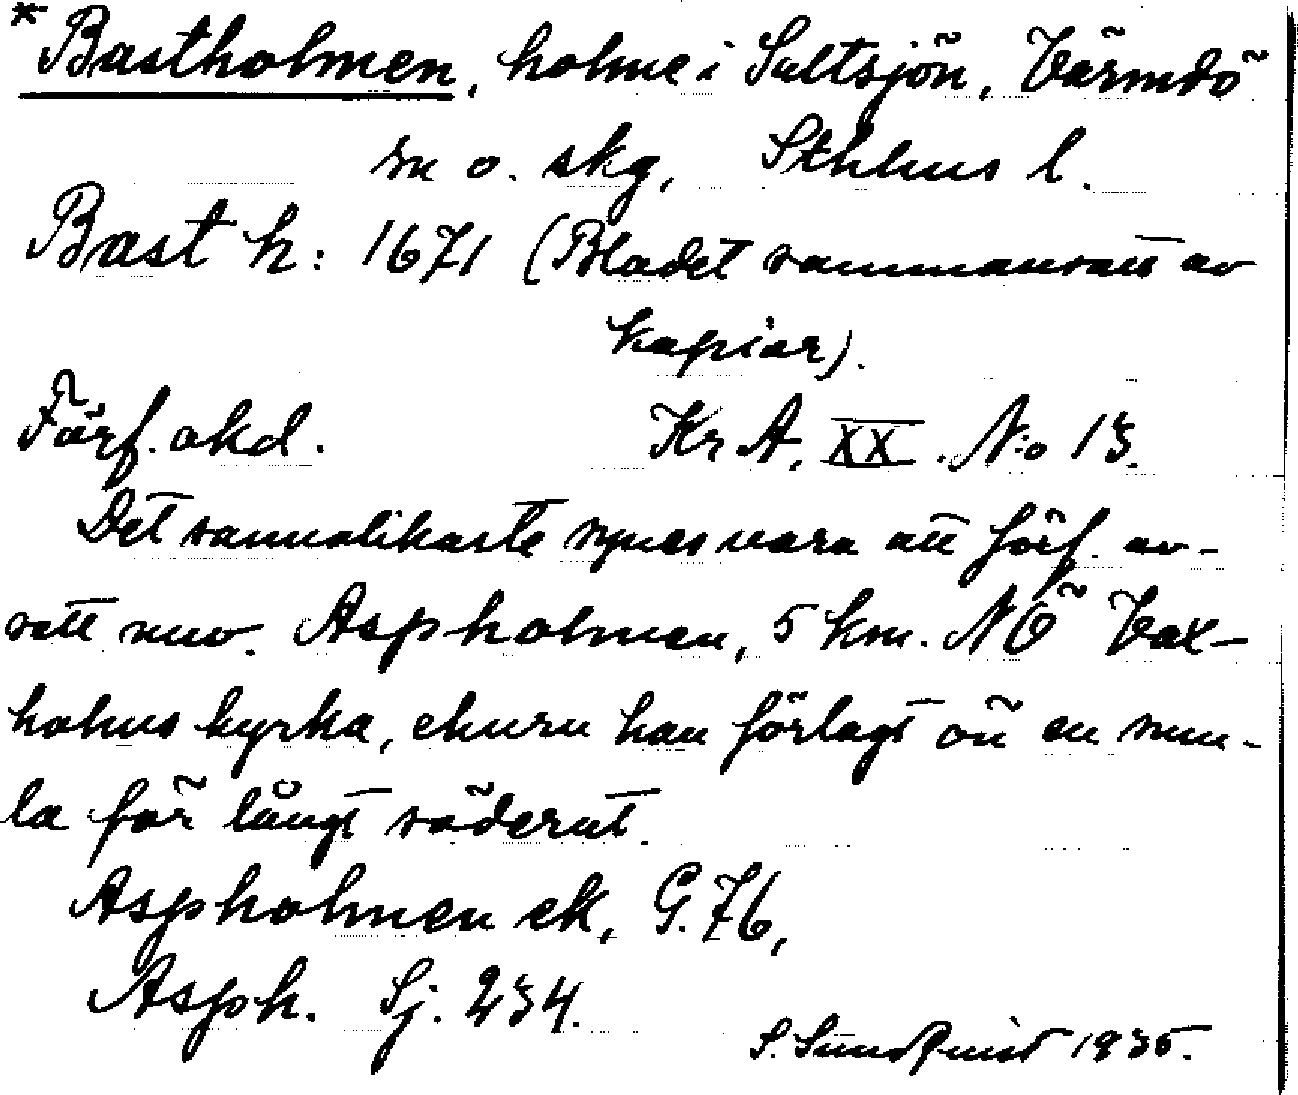 *Bastholmen, holme i Saltsjön, Värmdö
sn o. skg, Sthlms l.
Bast h: 1671 (Bladet sammansatt av
kopior).
Förf. okd. Kr A, XX. No 13.
Det sannolikaste synes vara att förf. av-
sett nuv. Aspholmen, 5 km. NÖ Vax-
holms kyrka, ehuru han förlagt ön en smu-
la för långt söderut.
Aspholmen ek, G. 76,
Asph. Sj. 234.
S. Sundquist 1935.